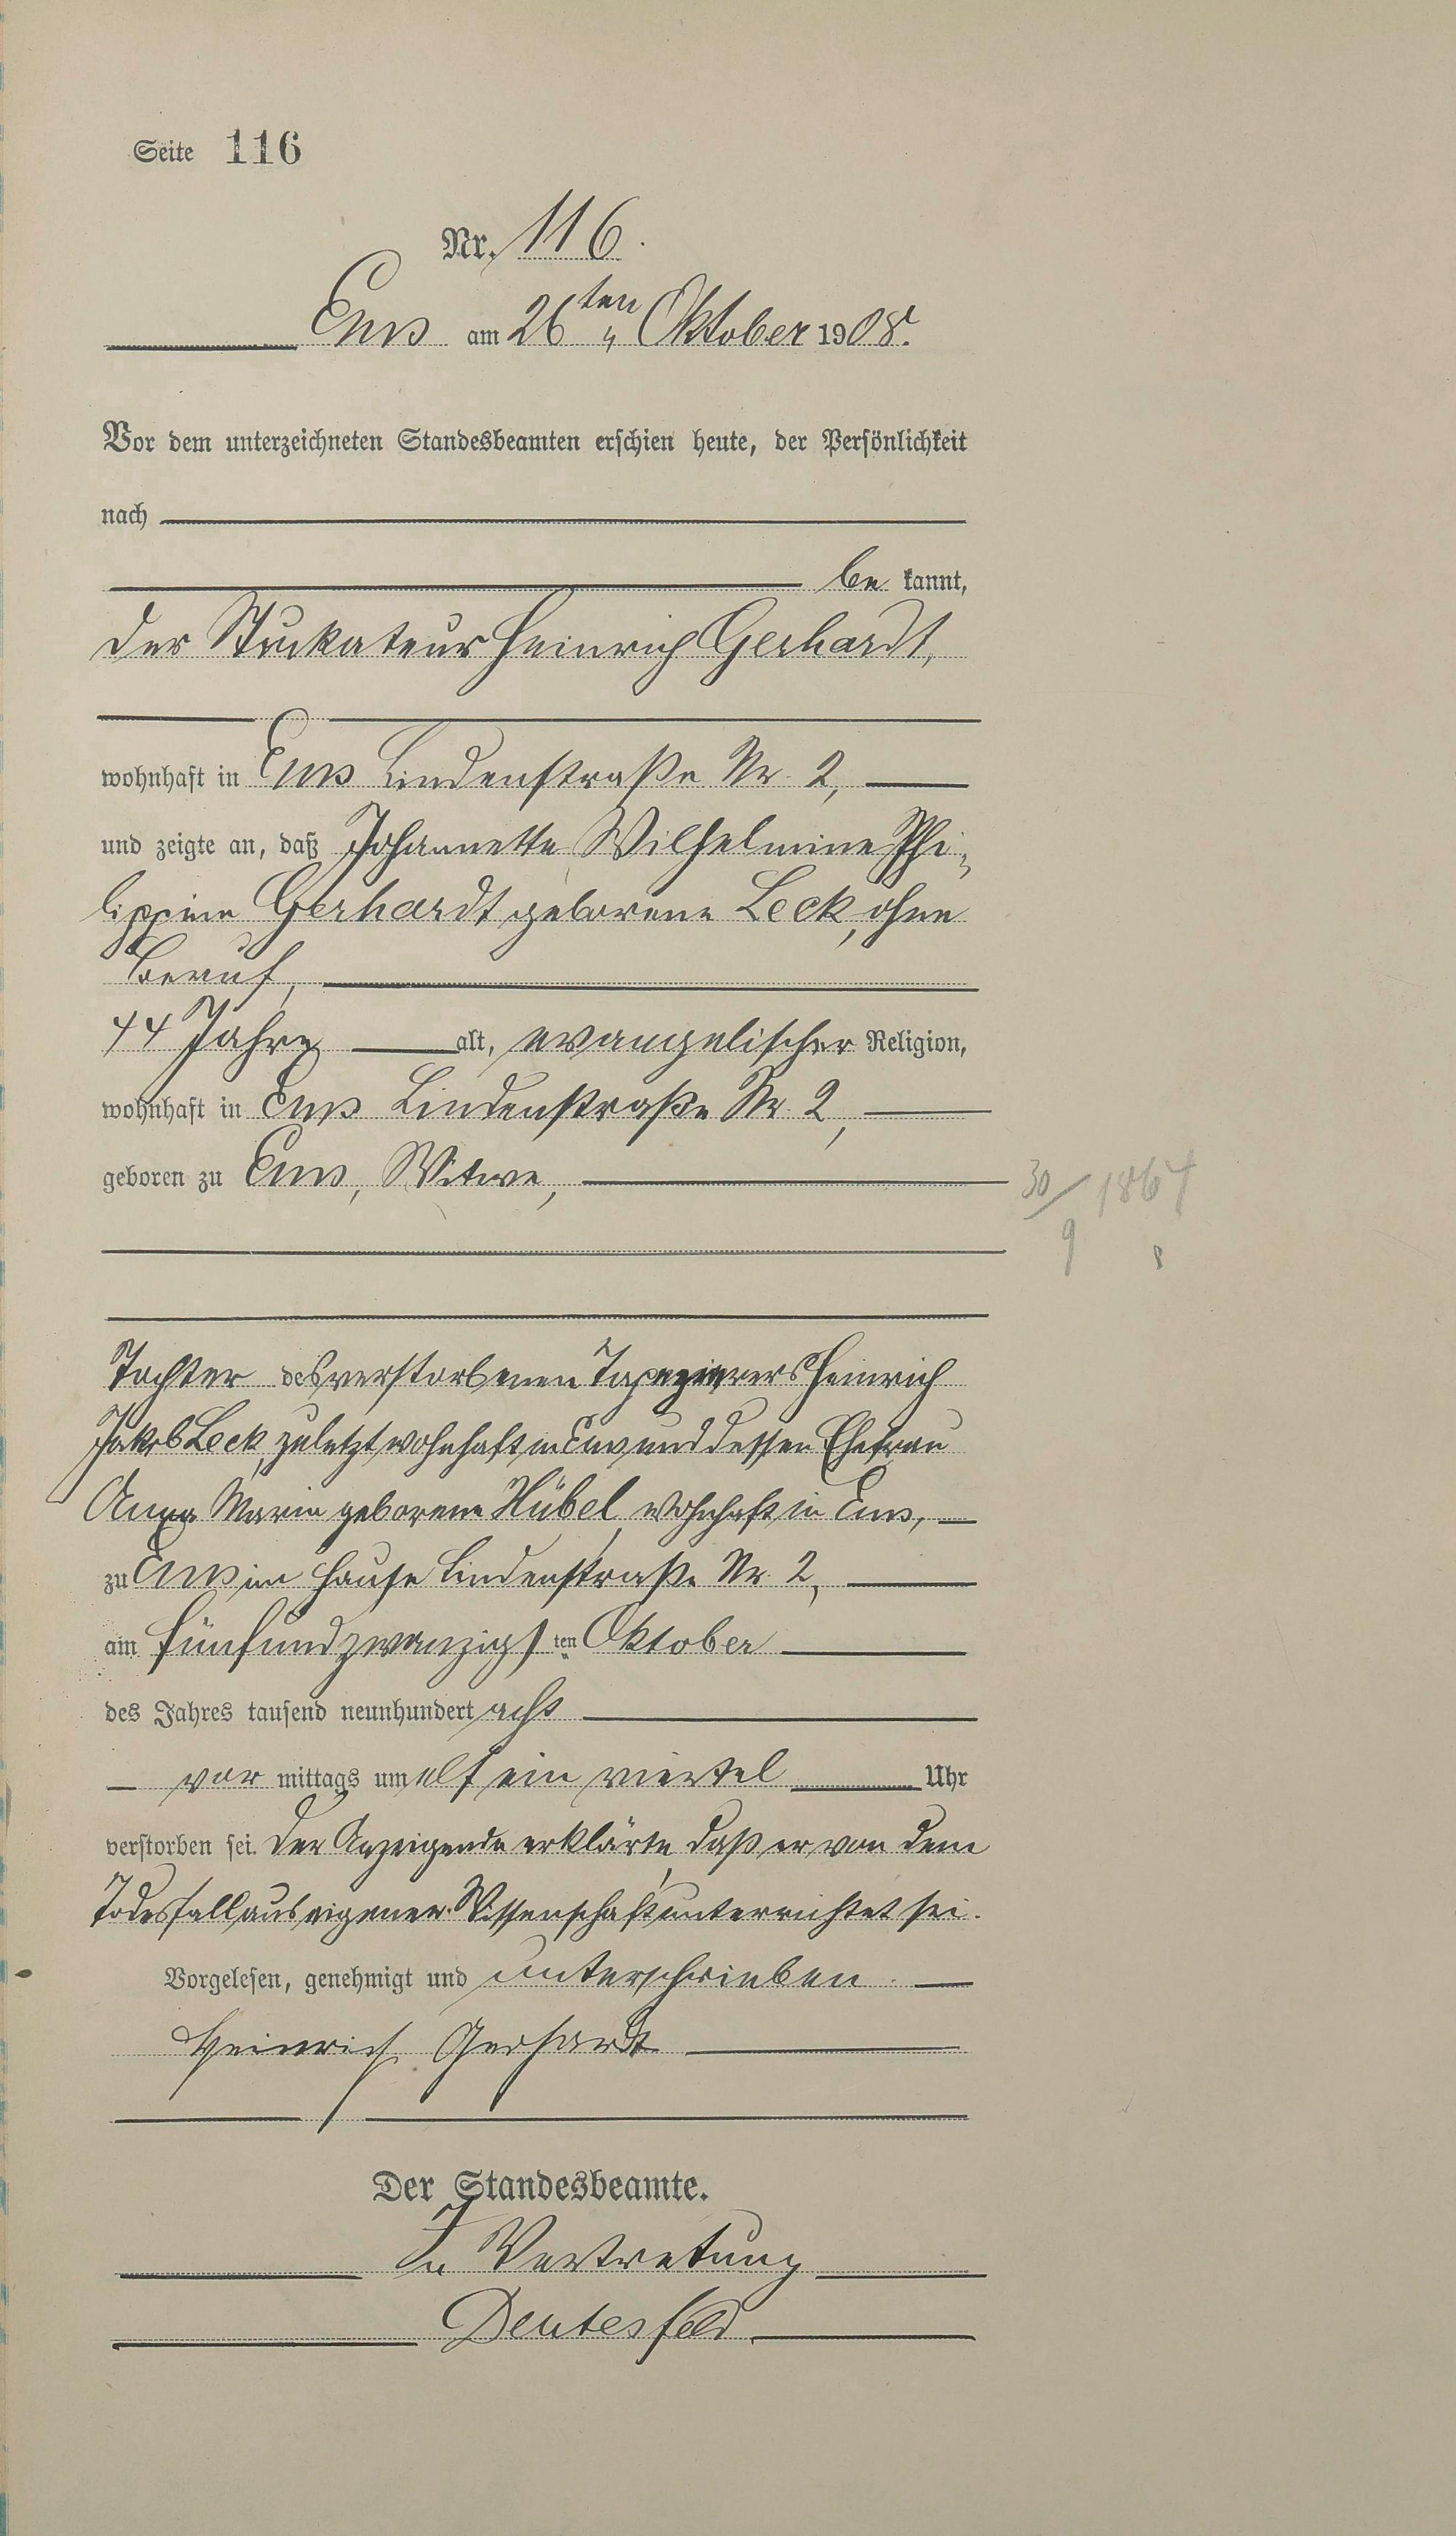 Seite 116
Nr. 116.
Ems am 26ten " Oktober 1908.
Vor dem unterzeichneten Standesbeamten erschien heute, der Persönlichkeit
nach
be kannt,
der Stukateur Heinrich Gerhardt,
wohnhaft in Ems Lindenstraße Nr. 2,
und zeigte an, daß Johannette Wilhelmine Phi-
lippine Gerhardt geborene Leck, ohne
Beruf,
44 Jahre alt, evangelischer Religion,
wohnhaft in Ems Lindenstraße Nr. 2,
geboren zu Ems, Witwe,
30/9 1864
Tochter des verstorbenen Tapezierers Heinrich
Jakob Leck, zuletzt wohnhaft in Ems und dessen Ehefrau
Anna Maria geborene Hübel, wohnhaft in Ems,
zu Ems im Hause Lindenstraße Nr. 2,
am fünfundzwanzigsten Oktober
des Jahres tausend neunhundert acht
vor mittags um elf ein viertel Uhr
verstorben sei. Der Anzeigende erklärte, daß er von dem
Todesfall aus eigener Wissenschaft unterrichtet sei.
Vorgelesen, genehmigt und unterschrieben.
Heinrich Gerhardt
Der Standesbeamte.
In Vertretung
Deutesfeld